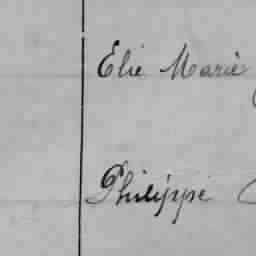 Elie Marie
Philippe